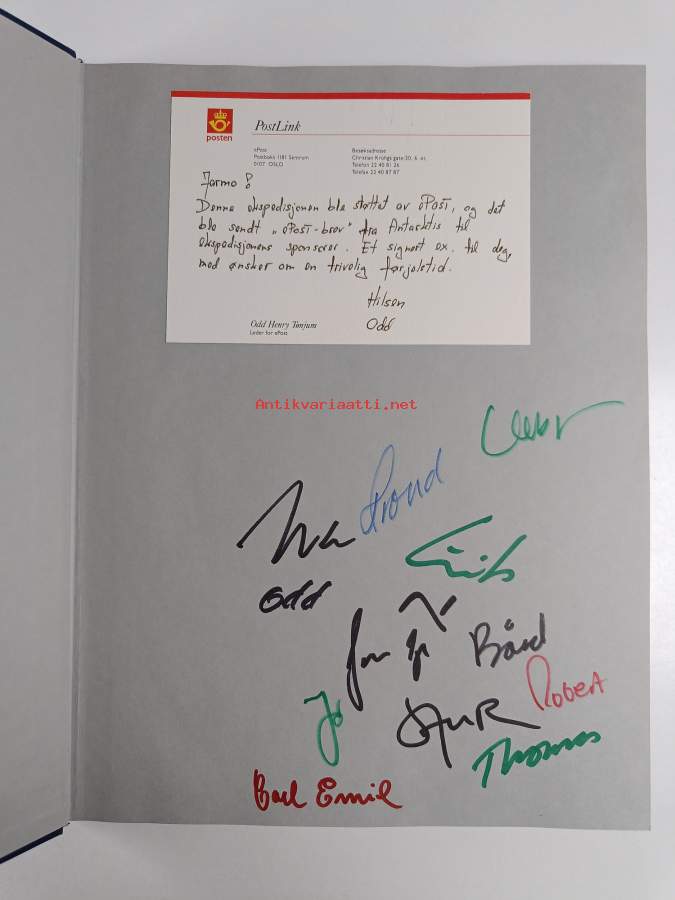 posten
PostLink
ePost
Postboks 1181 Sentrum
0107 OSLO
Besøksadresse
Christian Krohgs gate 20, 6. et.
Telefon 22 40 81 26
Telefax 22 40 87 87
Jarmo!
Denne ekspedisjonen ble støttet av ePost, og det
ble sendt "ePost-brev" fra Antarktis til
ekspedisjonens sponsorer. Et signert ex. til deg,
med ønsker om en trivelig førjulstid.
Hilsen
Odd
Odd Henry Tønjum
Leder for ePost
Antikvariaatti.net
Trond
Odd
Bård
Robert
Thomas
Carl Emil